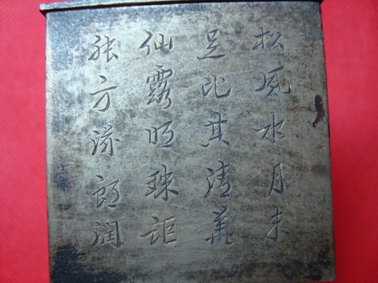 松风水月未
足比其清華
仙露明珠詎
能方海朗潤